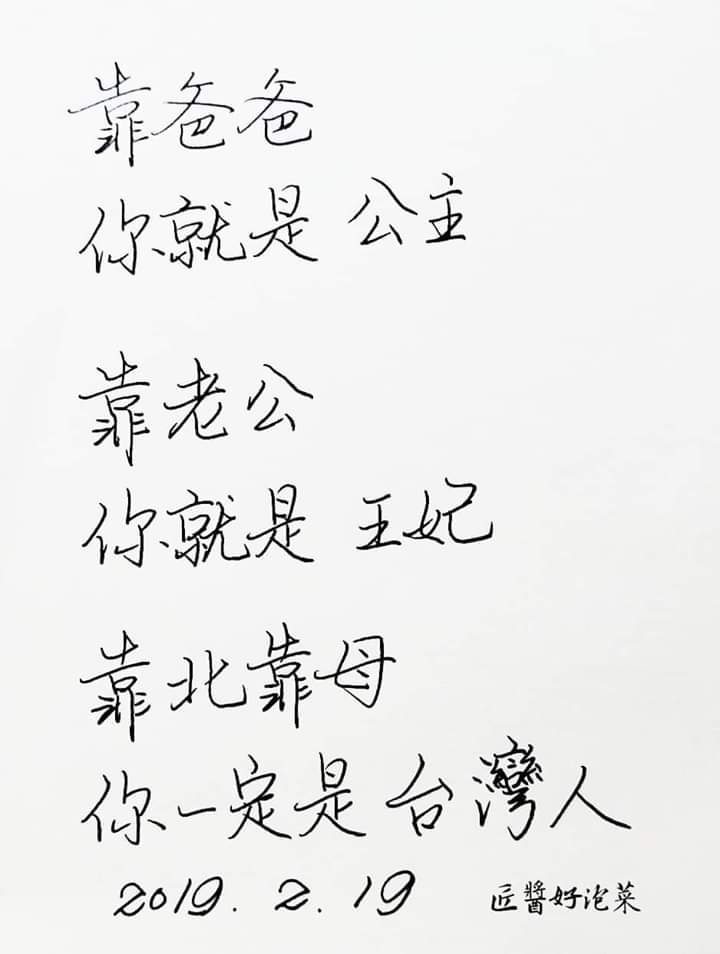 靠爸爸
你就是 公主
靠老公
你就是 王妃
靠北靠母
你一定是 台灣人
2019.2.19 匠醬好泡菜